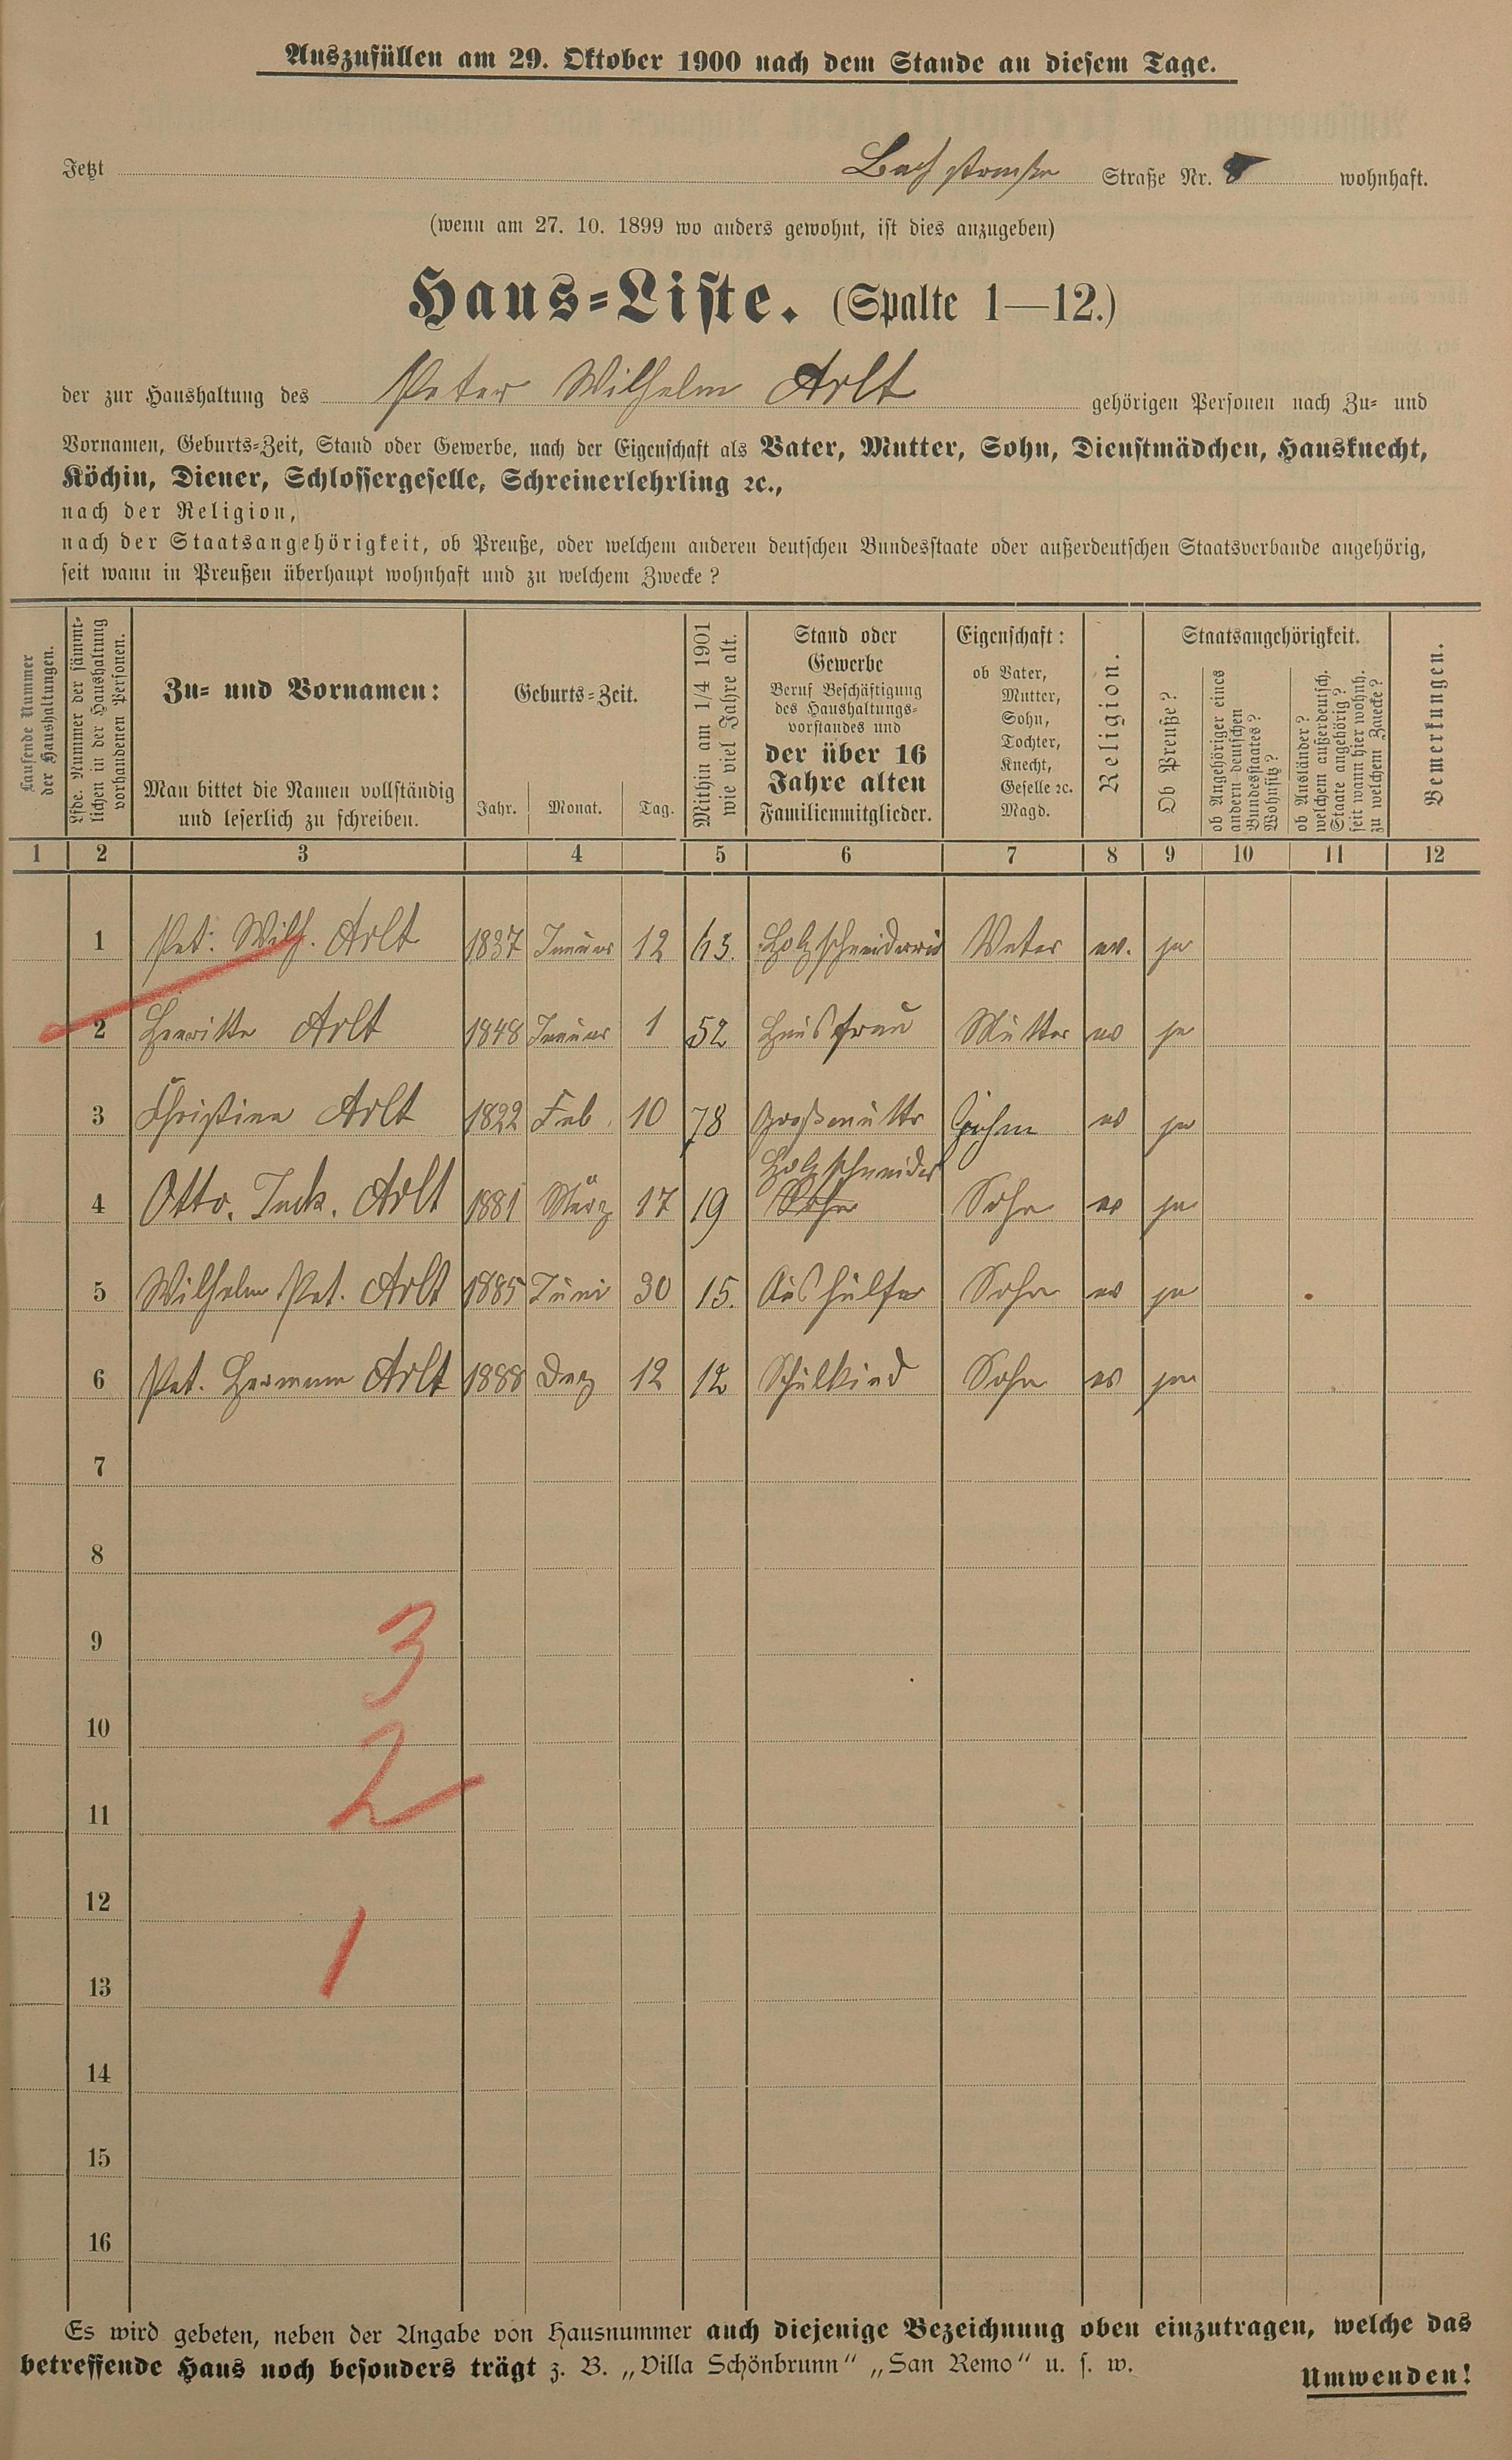 Auszufüllen am 29. Oktober 1900 nach dem Stande an diesem Tage.
Jetzt Bachstraße Straße Nr. 8 wohnhaft.
(wenn am 27. 10. 1899 wo anders gewohnt, ist dies anzugeben)
Haus-Liste. (Spalte 1—12.)
der zur Haushaltung des Peter Wilhelm Arlt gehörigen Personen nach Zu- und
Vornamen, Geburts-Zeit, Stand oder Gewerbe, nach der Eigenschaft als Vater, Mutter, Sohn, Dienstmädchen, Hausknecht,
Köchin, Diener, Schlossergeselle, Schreinerlehrling ꝛc.,
nach der Religion,
nach der Staatsangehörigkeit, ob Preuße, oder welchem anderen deutschen Bundesstaate oder außerdeutschen Staatsverbande angehörig,
seit wann in Preußen überhaupt wohnhaft und zu welchem Zwecke?
Laufende Nummer
der Haushaltungen.
Lfde. Nummer der sämmt-
lichen in der Haushaltung
vorhandenen Personen.
Zu- und Vornamen:
Man bittet die Namen vollständig
und leserlich zu schreiben.
Geburts-Zeit.
Jahr. Monat. Tag.
Mithin am 1/4 1901
wie viel Jahre alt.
Stand oder
Gewerbe
Beruf Beschäftigung
des Haushaltungs-
vorstandes und
der über 16
Jahre alten
Familienmitglieder.
Eigenschaft:
ob Vater,
Mutter,
Sohn,
Tochter,
Knecht,
Geselle ꝛc.
Magd.
Religion.
Staatsangehörigkeit.
Ob Preuße?
ob Angehöriger eines
andern deutschen
Bundesstaates?
Wohnsitz?
ob Ausländer?
welchem außerdeutsch.
Staate angehörig?
seit wann hier wohnh.
zu welchem Zwecke?
Bemerkungen.
1 2 3 4 5 6 7 8 9 10 11 12
1 Pet. Wilh. Arlt 1837 Januar 12 63. Vater ev. ja
2 Henritte Arlt 1848 Januar 1 52 Hausfrau Mutter ev ja
3 Christina Arlt 1822 Feb. 10 78 Großmuttr ev ja
Holzschneider
4 Otto. Arlt 1881 März 17 19 Sohn Sohn ev ja
5 Wilhelm Pet. Arlt 1885 Juni 30 15. Aushülfer Sohn ev ja
6 Pet. Hermann Arlt 1888 Dez 12 12 Schulkind Sohn ev ja
7
8
9
3
10
2
11
12
1
13
14
15
16
Es wird gebeten, neben der Angabe von Hausnummer auch diejenige Bezeichnung oben einzutragen, welche das
betreffende Haus noch besonders trägt z. B. „Villa Schönbrunn“ „San Remo“ u. s. w.
Umwenden!